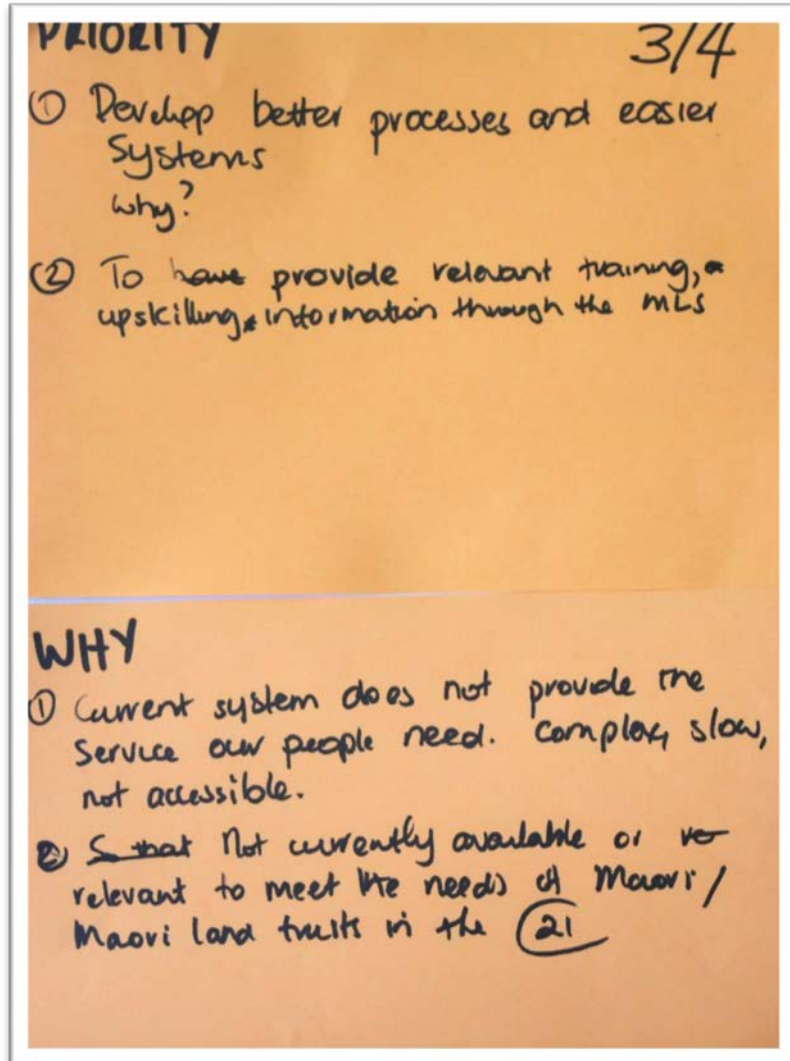 PRIORITY 3/4
① Develop better processes and easier
Systems
why?
② To have provide relevant training,
upskilling, information through the MLS
WHY
① Current system does not provide the
Service our people need. Complex, slow,
not accessible.
② So that Not currently available or re
relevant to meet the needs of Maori /
Maori land trusts in the 21